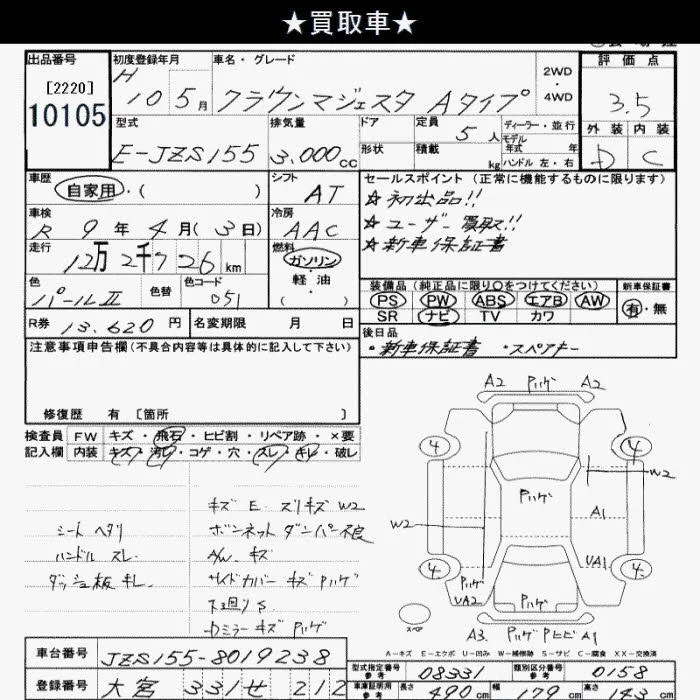 ★買取車★
出品番号 初度登録年月 車名・グレード 2WD ・ 4WD 評価点
[2220]
10105
H 10 5月 クラウンマジェスタ Aタイプ 3.5
型式 排気量 ドア 定員 5人 ディーラー・並行 外装 内装
E-JZS155 3.000cc 形状 積載 kg モデル年式 年 ハンドル 左・右 D C
車歴 自家用・( ) シフト AT セールスポイント (正常に機能するものに限ります)
★初出品!!
車検 R 9年 4月(3日) 冷房 AAC ★ユーザー買取!!
走行 12万2千726km 燃料 ガソリン・軽油・( ) ★新車保証書
色 パールII 色替 色コード 051 装備品 (純正品に限り○をつけてください) 新車保証書
PS PW ABS エアB AW 有・無
SR ナビ TV カワ
R券 13.620円 名変期限 月 日 後日品
・新車保証書 ・スペアキー
注意事項申告欄(不具合内容等は具体的に記入して下さい)
修復歴 有 [箇所 ]
検査員 FW キズ・飛石・ヒビ割・リペア跡・×要
記入欄 内装 キズ・汚レ・コゲ・穴・スレ・キレ・破レ
A2 Pハゲ A2
4 4
W2
Pハゲ
W2 A1
UA1
4 4
Pハゲ
UA2 Pハゲ
スペア
A3 Pハゲ PヒビA1
キズ E スリキズ W2
シートヘタリ ボンネットダンパー不良
ハンドルスレ A/W キズ
ダッシュ板キレ サイドカバー キズ Pハゲ
下廻りS
Dミラー キズ Pハゲ
A-キズ E-エクボ U-凹み W-補修跡 S-サビ C-腐食 XX-交換済
車台番号 JZS155-8019238
型式指定番号 参考 08331 類別区分番号 参考 0158
登録番号 大宮 331せ 212
車庫証明用 参考 長さ 490cm 幅 179cm 高さ